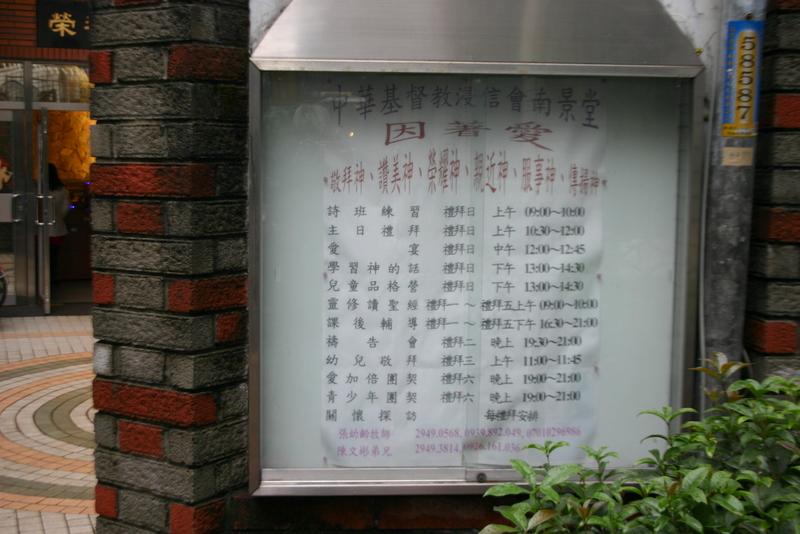 榮
58587
中華基督教浸信會南景堂
因著愛
敬拜神、讚美神、榮耀神、親近神、服事神、傳揚神
詩班練習 禮拜日 上午 09:00~10:00
主日禮拜 禮拜日 上午 10:30~12:00
愛宴 禮拜日 中午 12:00~12:45
學習神的話 禮拜日 下午 13:00~14:30
兒童品格營 禮拜日 下午 13:00~14:30
靈修讀聖經 禮拜一~禮拜五上午 09:00~10:00
課後輔導 禮拜一~禮拜五下午 16:30~21:00
禱告會 禮拜二 晚上 19:30~21:00
幼兒敬拜 禮拜三 上午 11:00~11:45
愛加倍團契 禮拜六 晚上 19:00~21:00
青少年團契 禮拜六 晚上 19:00~21:00
關懷探訪 每禮拜安排
張幼齡牧師 2949.0568, 0939.892.049, 07010296986
陳文彬弟兄 2949.3814, 0926.161.036